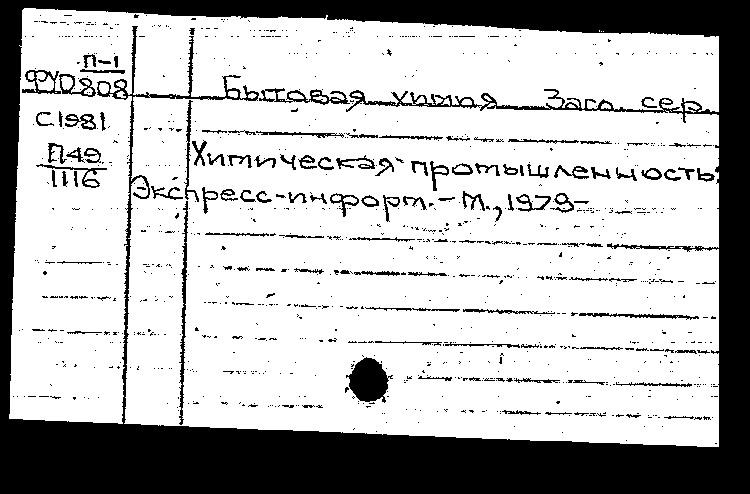 П-1
ФУD808
Бытовая химия Загл. сер.
С.1981
П49
1116
Химическая промышленность:
Экспресс-информ. - М., 1979-